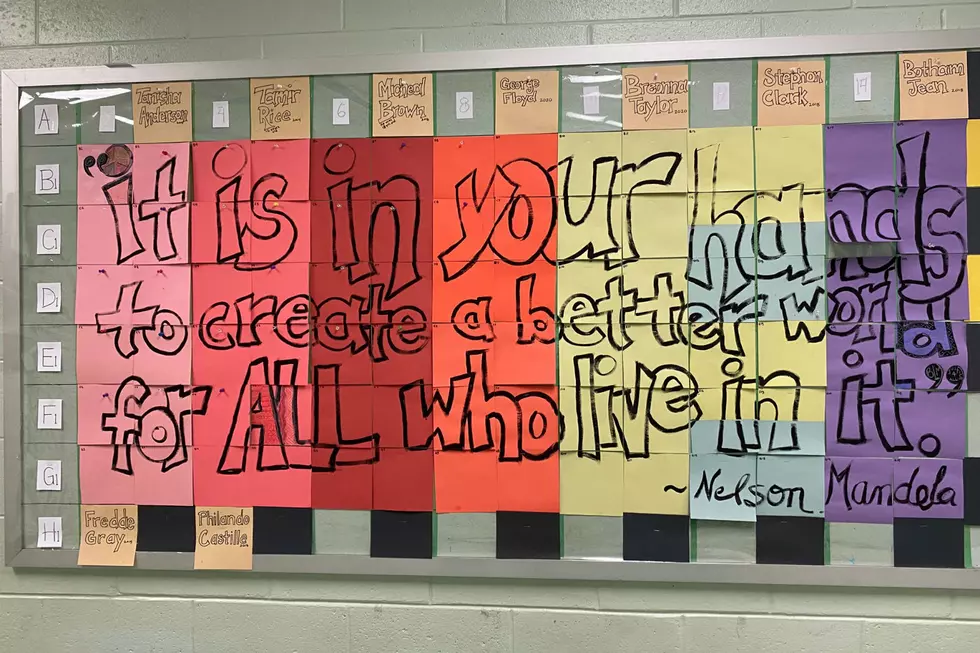 A
Tanisha Anderson
4
Tamir Rice
6
Micheal Brown
8
George Floyd 2020
Breonna Taylor 2020
Stephon Clark 2018
14
Botham Jean 2018
B1
C1
D1
E1
F1
G1
H1
"it is in your hands
to create a better world
for ALL who live in it."
~ Nelson Mandela
Freddie Gray
Philando Castille